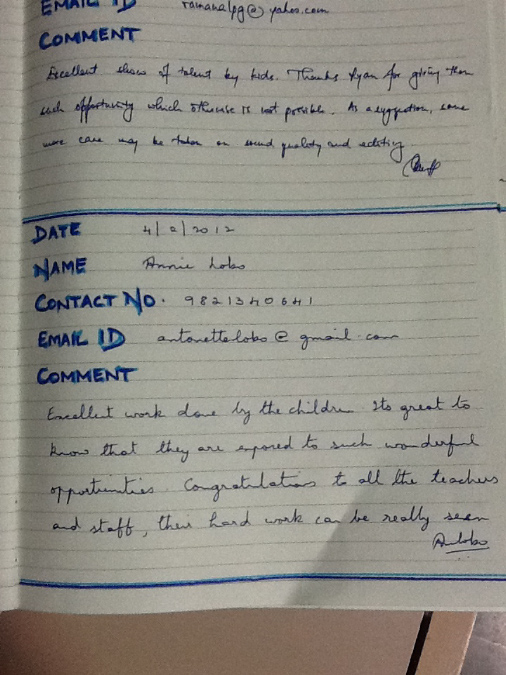 EMAIL ID ramanalpg@yahoo.com
COMMENT
Excellent show of talent by kids. Thanks Ryan for giving them
such opportunity which otherwise is not possible. As a suggestion, some
more care may be taken on sound quality and editing
DATE 4/2/2012
NAME Annie Lobo
CONTACT NO. 9821340641
EMAIL ID antonettelobo@gmail.com
COMMENT
Excellent work done by the children. Its great to
know that they are exposed to such wonderful
opportunities. Congratulations to all the teachers
and staff, their hard work can be really seen
Anlobo